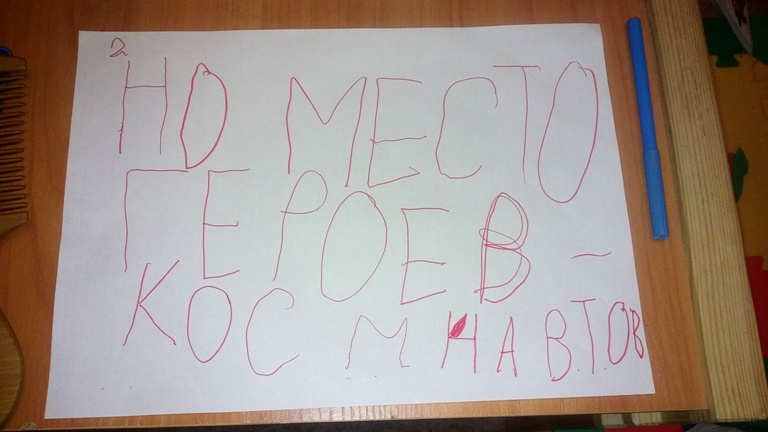 2
НО МЕСТО
ГЕРОЕВ -
КОСМНАВТОВ